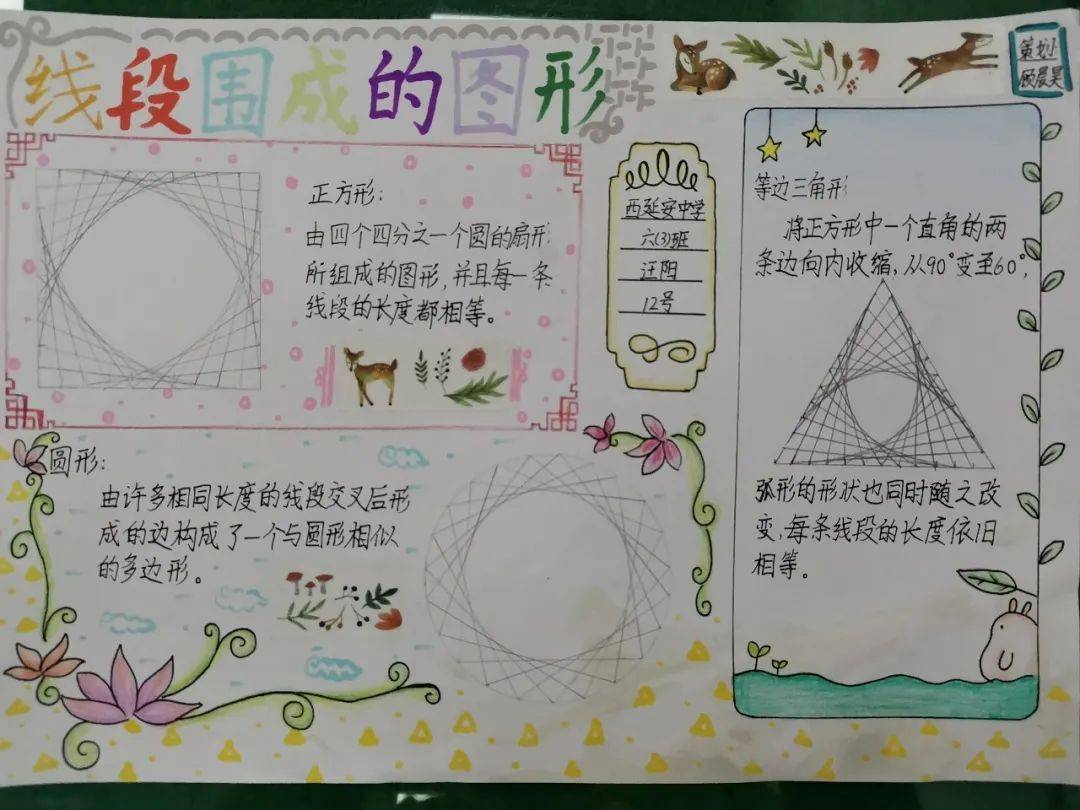 线段围成的图形
策划
顾晨昊
正方形:
由四个四分之一个圆的扇形
所组成的图形,并且每一条
线段的长度都相等。
西延安中学
六(3)班
汪阳
12号
等边三角形
将正方形中一个直角的两
条边向内收缩,从90°变至60°,
弧形的形状也同时随之改
变,每条线段的长度依旧
相等。
圆形:
由许多相同长度的线段交叉后形
成的边构成了一个与圆形相似
的多边形。